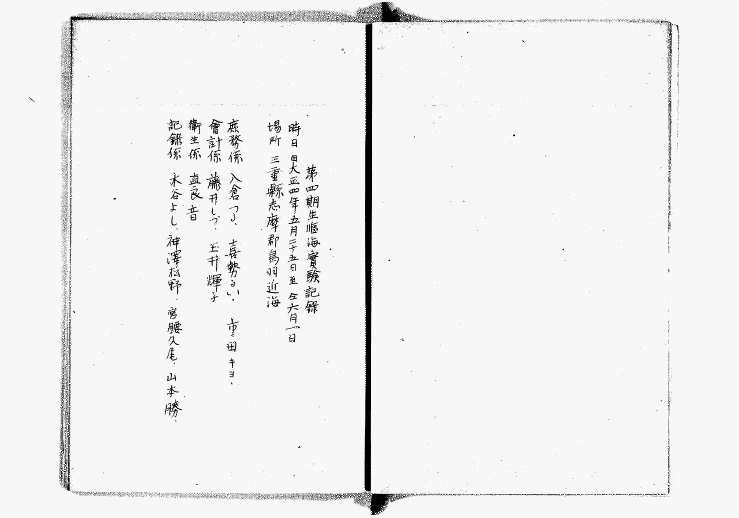 第四期生臨海實驗記録
時日 自大正四年五月二十五日至仝六月一日
場所 三重縣志摩郡鳥羽近海
庶務係 入倉つる、喜勢るい、市田キヨ、
會計係 藤井しづ、玉井輝子
衛生係 益良音
記録係 水谷よし、神澤松野、宮腰久尾、山本勝、